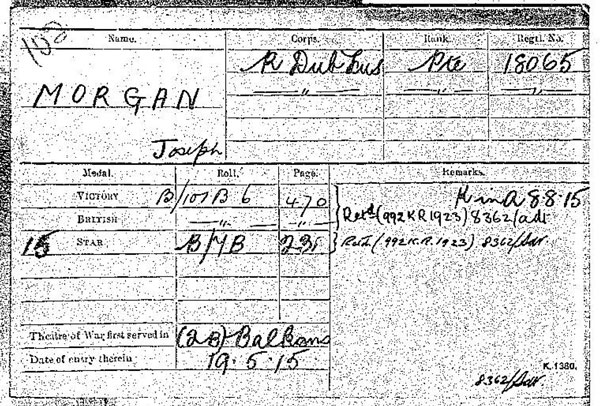 100
Name. Corps. Rank. Regtl. No.
R Dub Fus Pte 18065
MORGAN — " — — " — — " —
Joseph
Medal. Roll. Page. Remarks.
VICTORY B/107 B 6 470 K in A 8·8·15
BRITISH — " — — " — Retd (992 K R 1923) 8362/adt
15 STAR B/7B 231 Retd (992 K.R. 1923) 8362/adt
Theatre of War first served in (2B) Balkans
Date of entry therein 19·5·15
K. 1380.
8362/adt